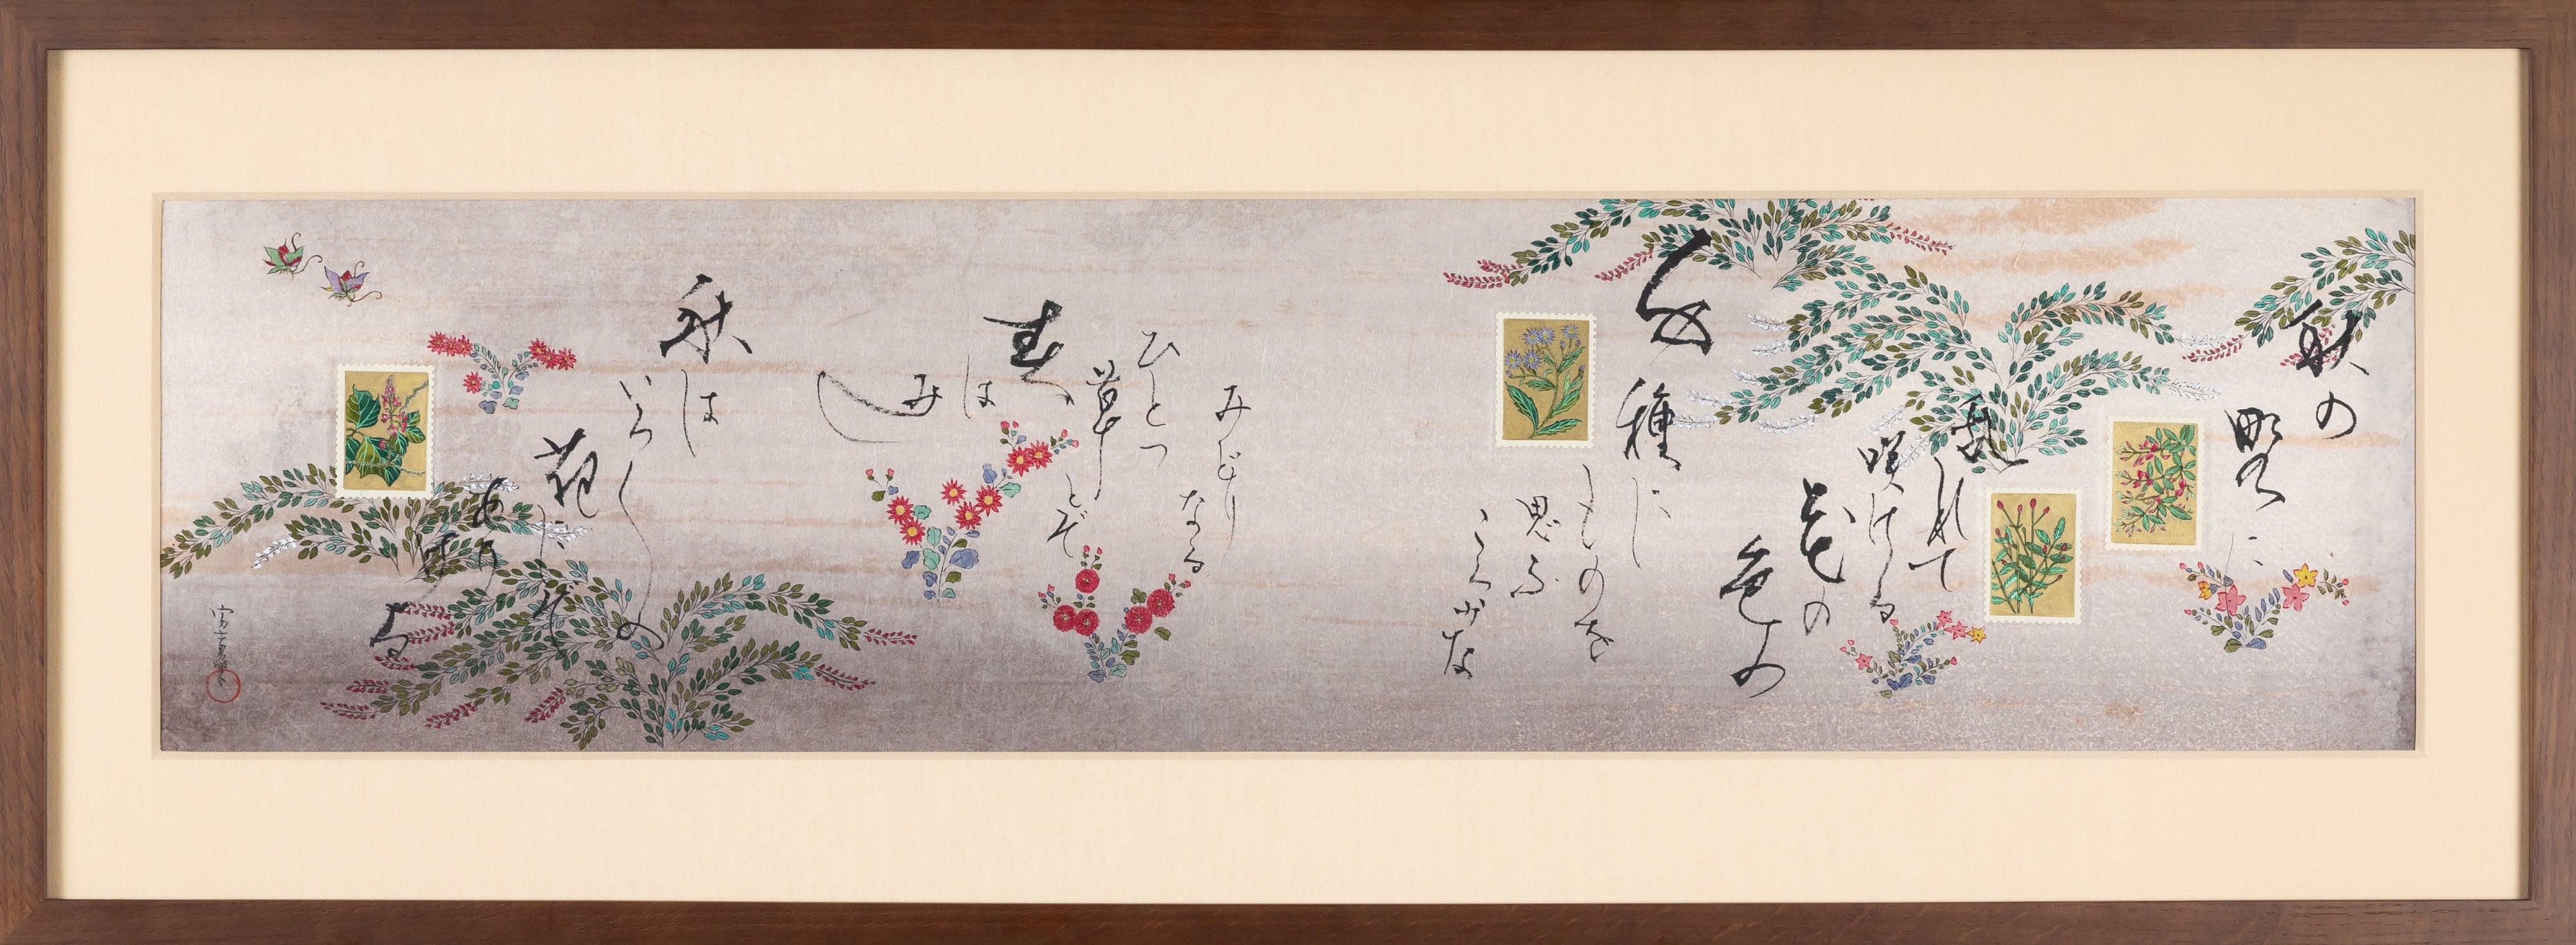 秋の
野に
乱れて
咲ける
花の
色の
千種に
ものを
思ふ
ころかな
みどり
なる
ひとつ
草とぞ
春は
みし
秋は
いろ〱の
花にぞ
あり
ける